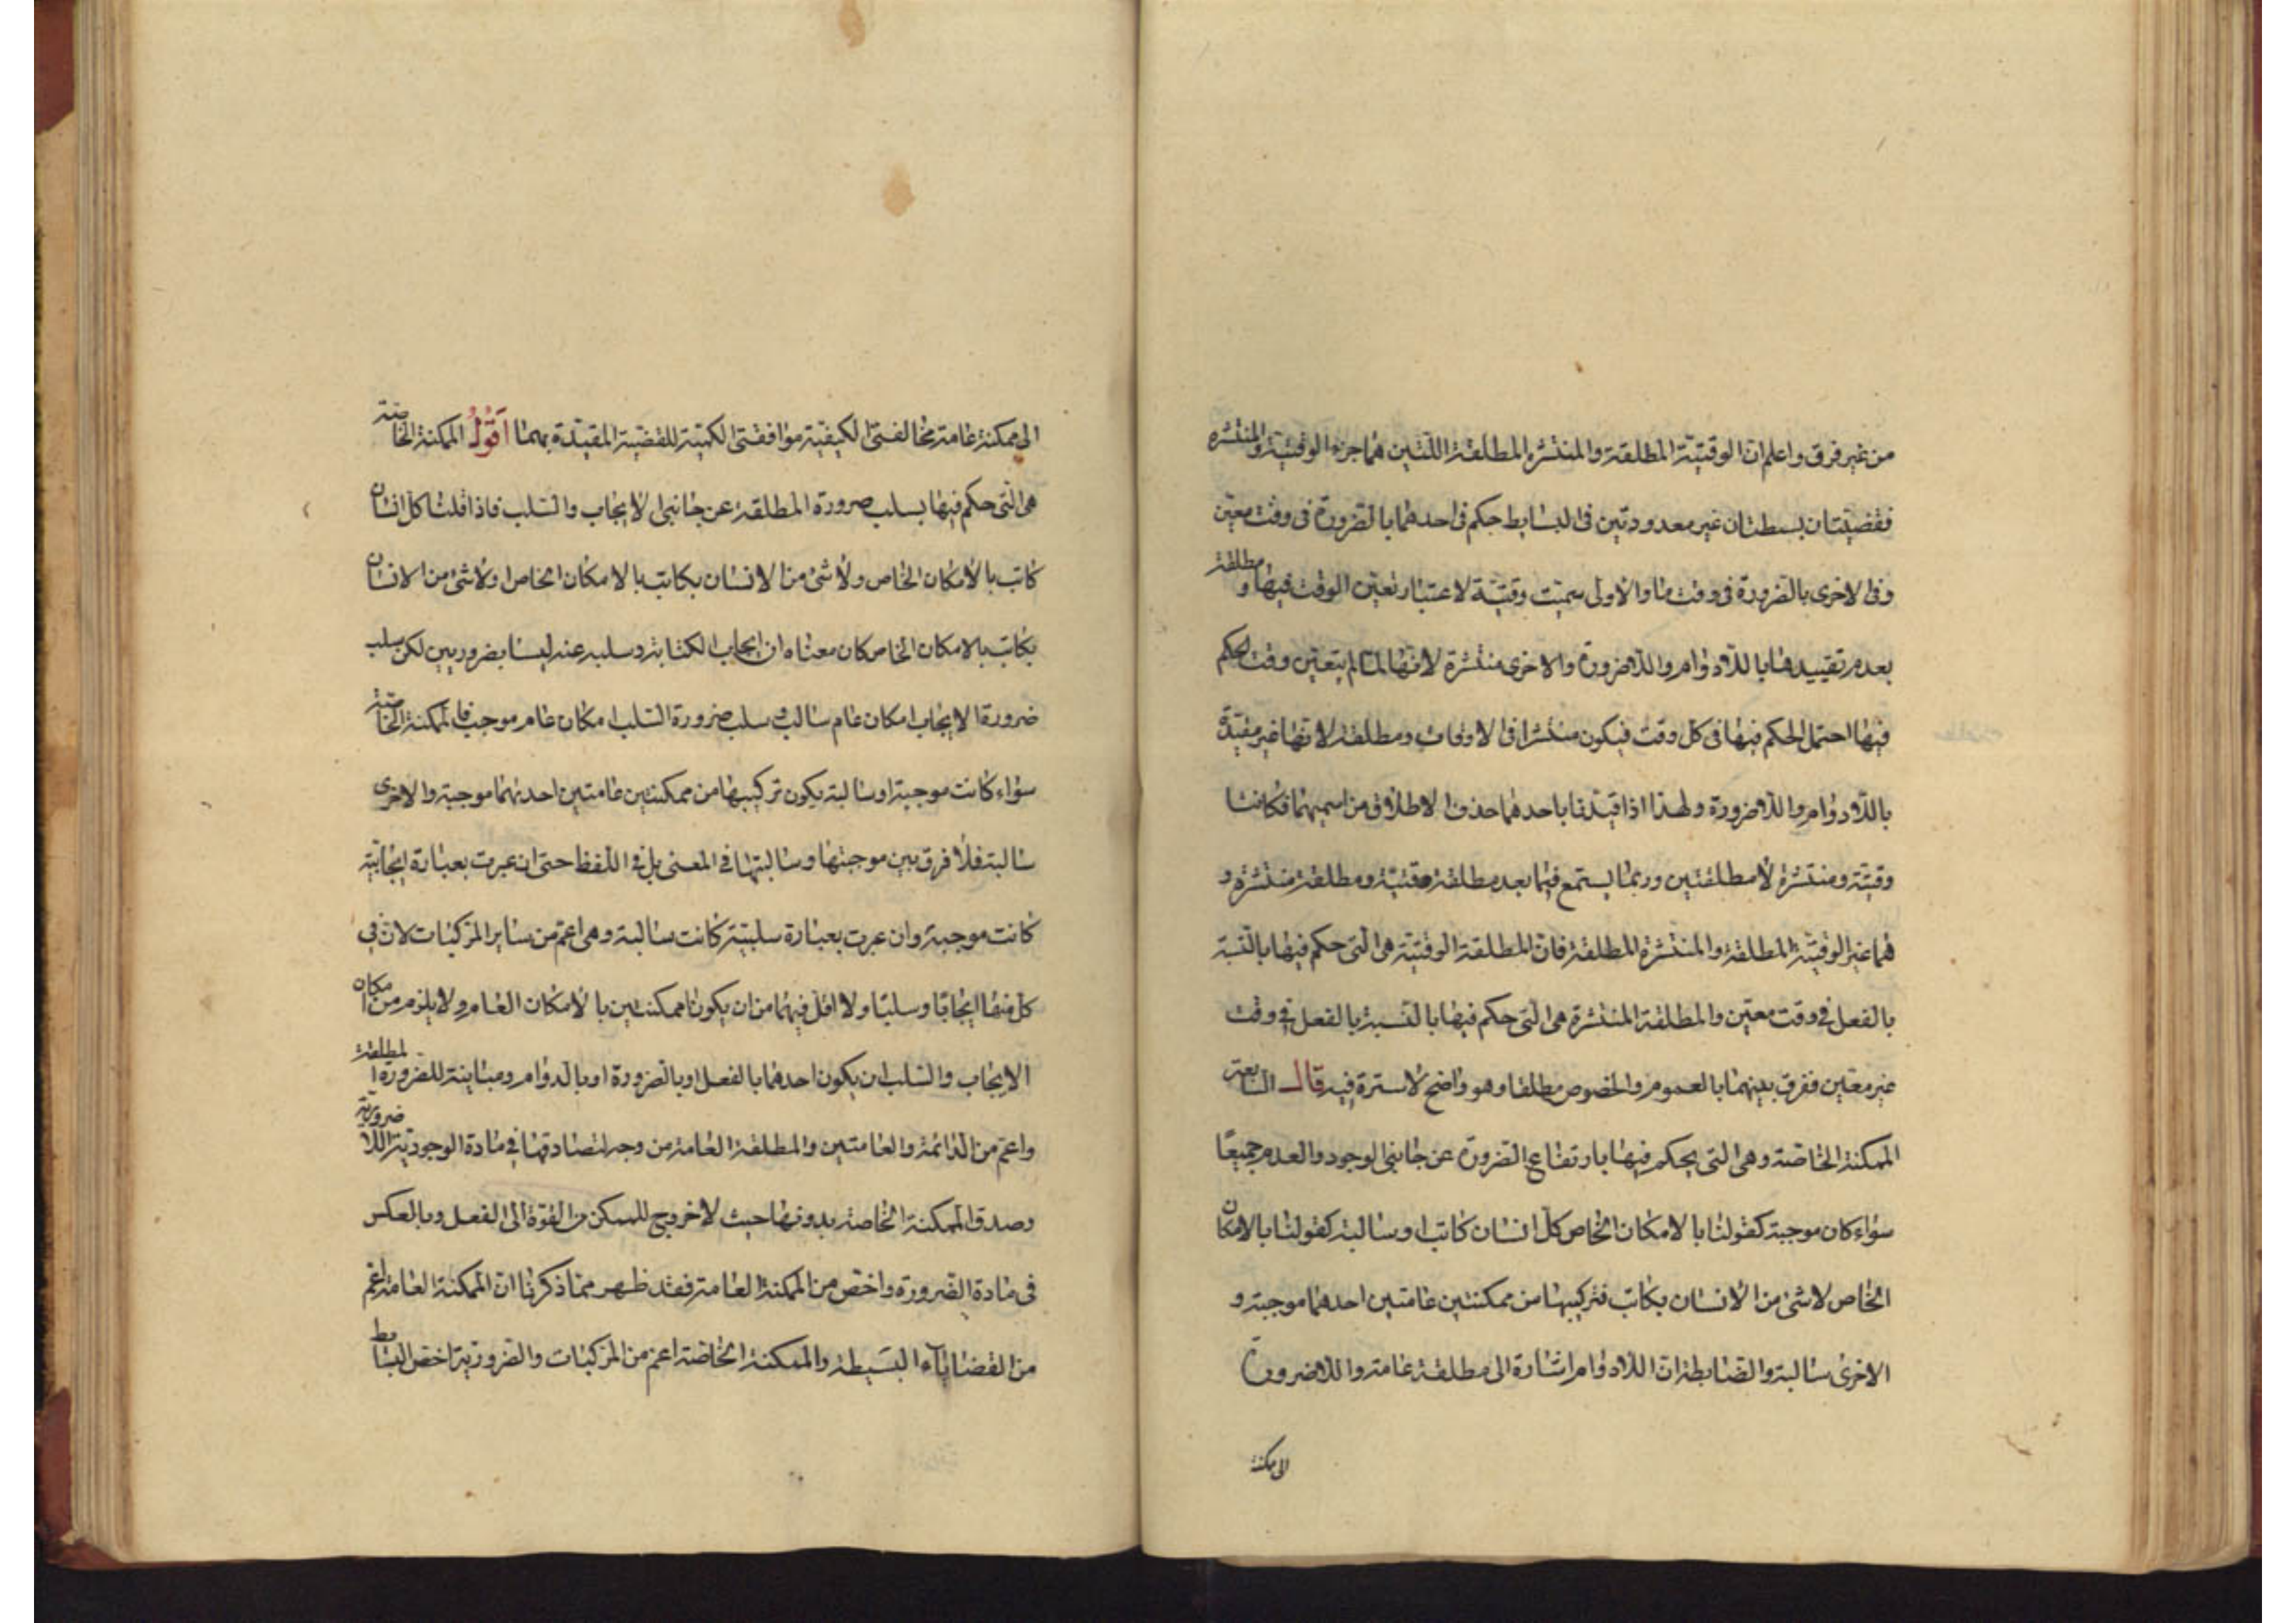 من غير فرق واعلم ان الوقتية المطلقة والمنتشرة المطلقة اللتين هما جزء الوقتية والمنتشرة
فقضيتان بسيطتان غير معدودتين فى البسايط حكم فى احدهما بالضرورة فى وقت معين
وفى الاخرى بالضرورة فى وقت ما والاولى سميت وقتية لاعتبار تعين الوقت فيها ومطلقة
بعدم تقييدها باللادوام واللاضرورة والاخرى منتشرة لانها لما لم يتعين وقت الحكم
فيها احتمل الحكم فيها فى كل وقت فيكون منتشرا فى الاوقات ومطلقة لانها غير مقيدة
باللادوام واللاضرورة ولهذا اذا قيدنا باحدهما حذف الاطلاق من اسميهما فكانتا
وقتية ومنتشرة لا مطلقتين وربما يستمع فيما بعد مطلقة وقتية ومطلقة منتشرة و
هما غير الوقتية المطلقة والمنتشرة المطلقة فان المطلقة الوقتية هى التى حكم فيها بالنسبة
بالفعل فى وقت معين والمطلقة المنتشرة هى التى حكم فيها بالنسبة بالفعل فى وقت
غير معين ففرق بينهما بالعموم والخصوص مطلقا وهو واضح لا سترة فيه قال السابعة
الممكنة الخاصة وهى التى يحكم فيها بارتفاع الضرورة عن جانبى الوجود والعدم جميعا
سواء كان موجبة كقولنا بالامكان الخاص كل انسان كاتب او سالبة كقولنا بالامكان
الخاص لا شئ من الانسان بكاتب فتركيبها من ممكنتين عامتين احدهما موجبة و
الاخرى سالبة والضابطة ان اللادوام اشارة الى مطلقة عامة واللاضرورة
الى ممكنة
الى ممكنة عامة مخالفتى الكيفية موافقتى الكمية للقضية المقيدة بهما اقول الممكنة الخاصة
هى التى حكم فيها بسلب ضرورة المطلقة عن جانبى الايجاب والسلب فاذا قلنا كل انسان
كاتب بالامكان الخاص ولا شئ من الانسان بكاتب بالامكان الخاص او لا شئ من الانسان
بكاتب بالامكان الخاص كان معناه ان ايجاب الكتابة وسلبه عنه ليسا بضروريين لكن سلب
ضرورة الايجاب امكان عام سالب وسلب ضرورة السلب امكان عام موجب فالممكنة الخاصة
سواء كانت موجبة او سالبة يكون تركيبها من ممكنتين عامتين احديهما موجبة والاخرى
سالبة فلا فرق بين موجبتها وسالبتها فى المعنى بل فى اللفظ حتى ان عبرت بعبارة ايجابية
كانت موجبة وان عبرت بعبارة سلبية كانت سالبة وهى اعم من ساير المركبات لان فى
كل منها ايجابا وسلبا ولا اقل فيهما من ان يكونا ممكنتين بالامكان العام ولا يلزم من امكان
الايجاب والسلب ان يكون احدهما بالفعل او بالضرورة او بالدوام ومباينة للضرورة المطلقة
واعم من الدائمة والعامتين والمطلقة العامة من وجه لتصادقها فى مادة الوجودية اللاضرورية
وصدق الممكنة الخاصة بدونها حيث لا خروج للممكن من القوة الى الفعل وبالعكس
فى مادة الضرورة واخص من الممكنة العامة فقد ظهر مما ذكرنا ان الممكنة العامة اعم
من القضاياء البسيطة والممكنة الخاصة اعم من المركبات والضرورية اخص البسايط